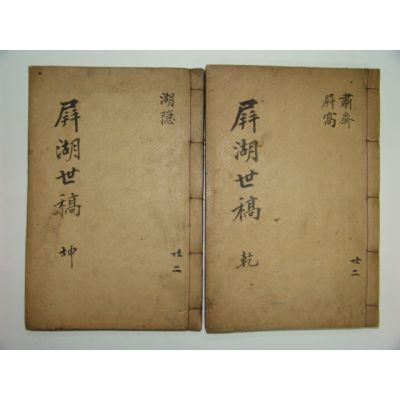 屛湖世稿 乾
肅齋
屛窩
共二
屛湖世稿 坤
湖隱
共二